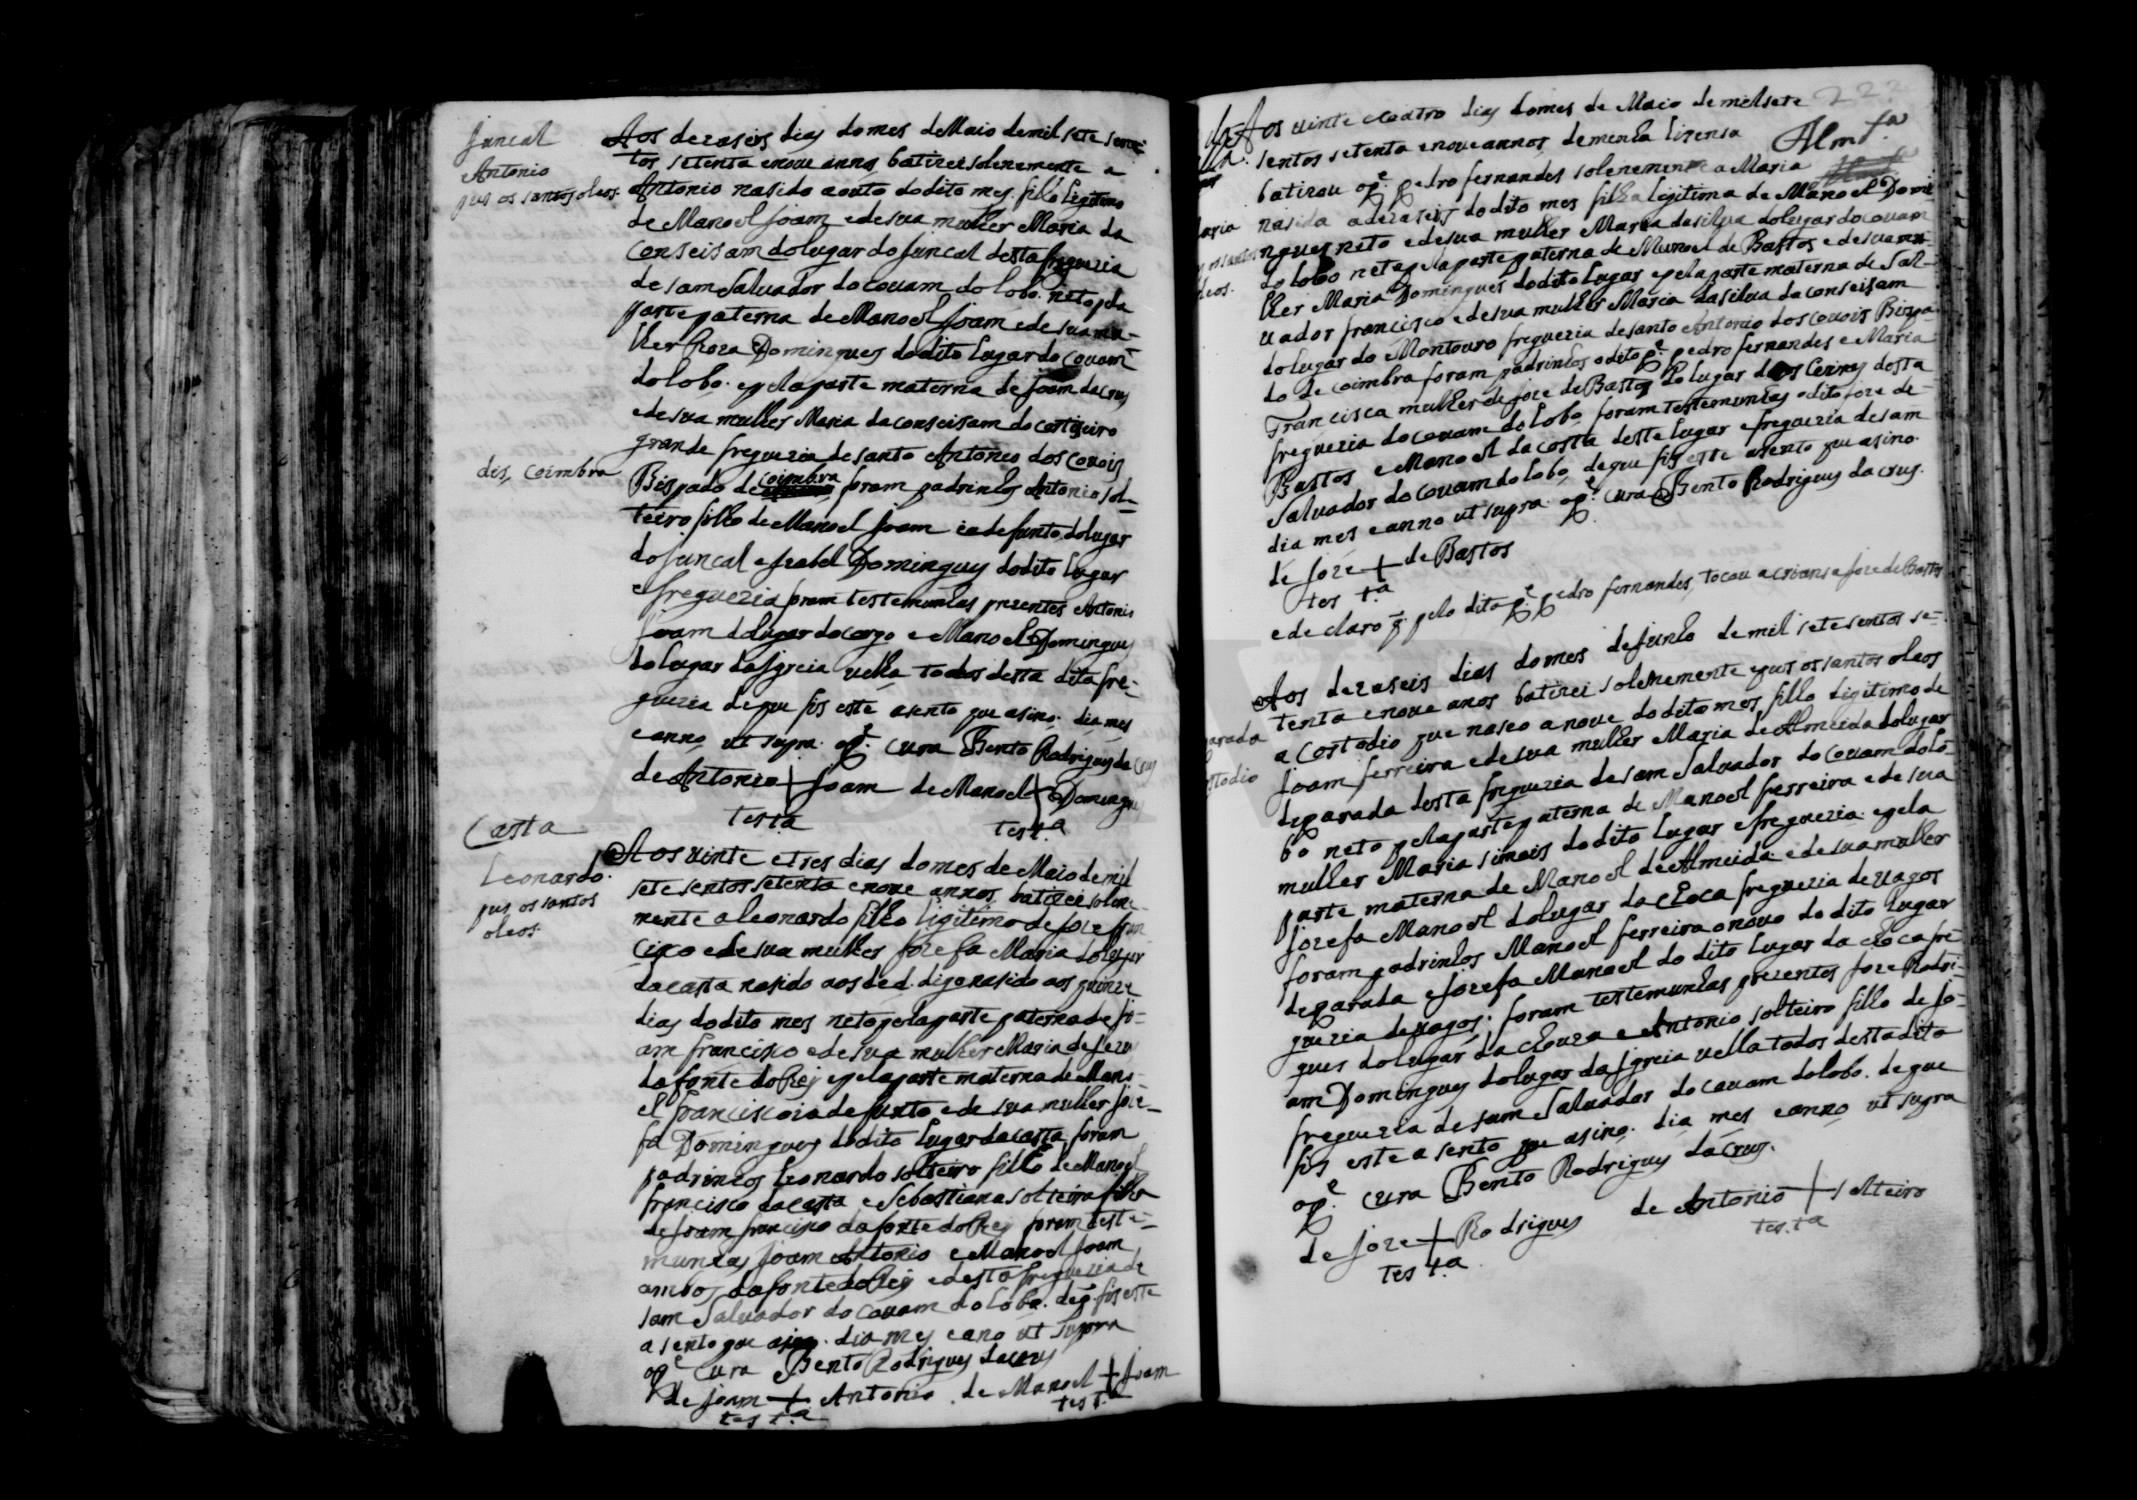 Juncal
Antonio
pus os santos oleos.
Aos dezaseis dias do mes de Maio de mil sete sen
tos setenta e nove annos batizei solenemente a
Antonio nasido a outo do dito mes, filho legitimo
de Manoel Joam e de sua mulher Maria da
Conseisam do lugar do Juncal desta freguezia
de sam Salvador do Couam do lobo. neto pla
parte paterna de Manoel Joam e de sua mu-
lher Roza Domingues do dito lugar do Couam
do lobo. e pela parte materna de Joam da Crus
e de sua mulher Maria da conseisam do cortiseiro
grande freguezia de santo Antonio dos Couois
dis, Coimbra
Bispado de coimbra foram padrinhos Antonio sol-
teiro filho de Manoel Joam ia defunto do lugar
do Juncal e Izabel Domingues do dito lugar
e freguezia foram testemunhas prezentes Antonio
Joam do lugar do corgo e Manoel Domingues
do lugar da Igreia velha todos desta dita fre-
guezia de que fis este asento que asino. dia mes
e anno ut supra. o pe. cura Bento Rodrigues da Crus
de Antonio + Joam de Manoel + Domingues
testa test.a
Costa
Leonardo.
pus os santos
oleos.
Aos vinte e tres dias do mes de Maio de mil
sete sentos setenta e nove annos batizei solene-
mente a leonardo filho ligitimo de Joze fran
cisco e de sua mulher Jozefa Maria do lugar
da costa nasido aos de d. digo nasido aos quinze
dias do dito mes neto pela parte paterna de Jo-
am francisco e de sua mulher Maria de Jezu
da fonte do Rej e pela parte materna de Mano-
el francisco ia defunto e de sua mulher Joze-
fa Domingues do dito lugar da costa foram
padrinhos leonardo solteiro filho de Manoel
francisco da costa e Sebastiana solteira filha
de Joam francisco da fonte do Rej foram teste-
munhas Joam Antonio e Manoel Joam
ambos da fonte do Rej e desta freguezia de
sam Salvador do Couam do lobo. de q. fis este
asento que asino. dia mes e ano ut supra
o pe cura Bento Rodrigues da crus
de Joam + Antonio. de Manoel + Joam
tes t.a tes t.a
222
Aos vinte e coatro dias do mes de Maio de mil sete
sentos setenta e nove annos, de minha lisensa
batizou o pe. pedro fernandes solenemente a Maria
aria
nasida a dezaseis do dito mes filha legitima de Manoel Domi
os santos
ngues neto e de sua mulher Maria da silva do lugar do couam
leos.
do lobo neta pela parte paterna de Manoel de Bastos e de sua mu-
lher Maria Domingues do dito lugar e pela parte materna de Sal-
uador francisco e de sua mulher Maria da silva da conseisam
do lugar do Montouro freguezia de santo Antonio dos couois Bispa
do de coimbra foram padrinhos o dito pe. pedro fernandes e Maria
Francisca mulher de joze de Bastos do lugar dos Ceires desta
freguezia do couam do lobo, foram testemunhas o dito joze de-
Bastos e Manoel da costa deste lugar e freguezia de sam
Salvador do couam do lobo, de que fis este asento que asino.
dia mes e anno ut supra. o pe. cura Bento Rodrigues da crus.
de Joze + de Bastos
tes t.a
e de claro q. pelo dito pe. pedro fernandes, tocou a criansa Joze de Bastos
Aos dezaseis dias do mes de Junho de mil sete sentos se-
tenta e nove anos batizei solenemente e pus os santos oleos
arada
a Costodio que naseo a nove do dito mes, filho ligitimo de
stodio
Joam ferreira e de sua mulher Maria de Almeida do lugar
de parada desta freguezia de sam Salvador do couam do lo-
bo neto pela parte paterna de Manoel ferreira e de sua
mulher Maria simois do dito lugar e freguezia. e pela
parte materna de Manoel de Almeida e de sua mulher
Jozefa Manoel do lugar da choca freguezia de vagos
foram padrinhos Manoel ferreira o novo do dito lugar
de parada e Jozefa Manoel do dito lugar da choca fre-
guezia de vagos; foram testemunhas prezentes joze Rodri-
gues do lugar da chouza e Antonio solteiro filho de Jo-
am Domingues do lugar da Igreia velha todos desta dita
freguezia de sam Salvador do couam do lobo. de que
fis este asento que asino. dia mes e anno ut supra
o pe. cura Bento Rodrigues da crus.
de Joze + Rodrigues de Antonio + solteiro
tes t.a tes.t.a